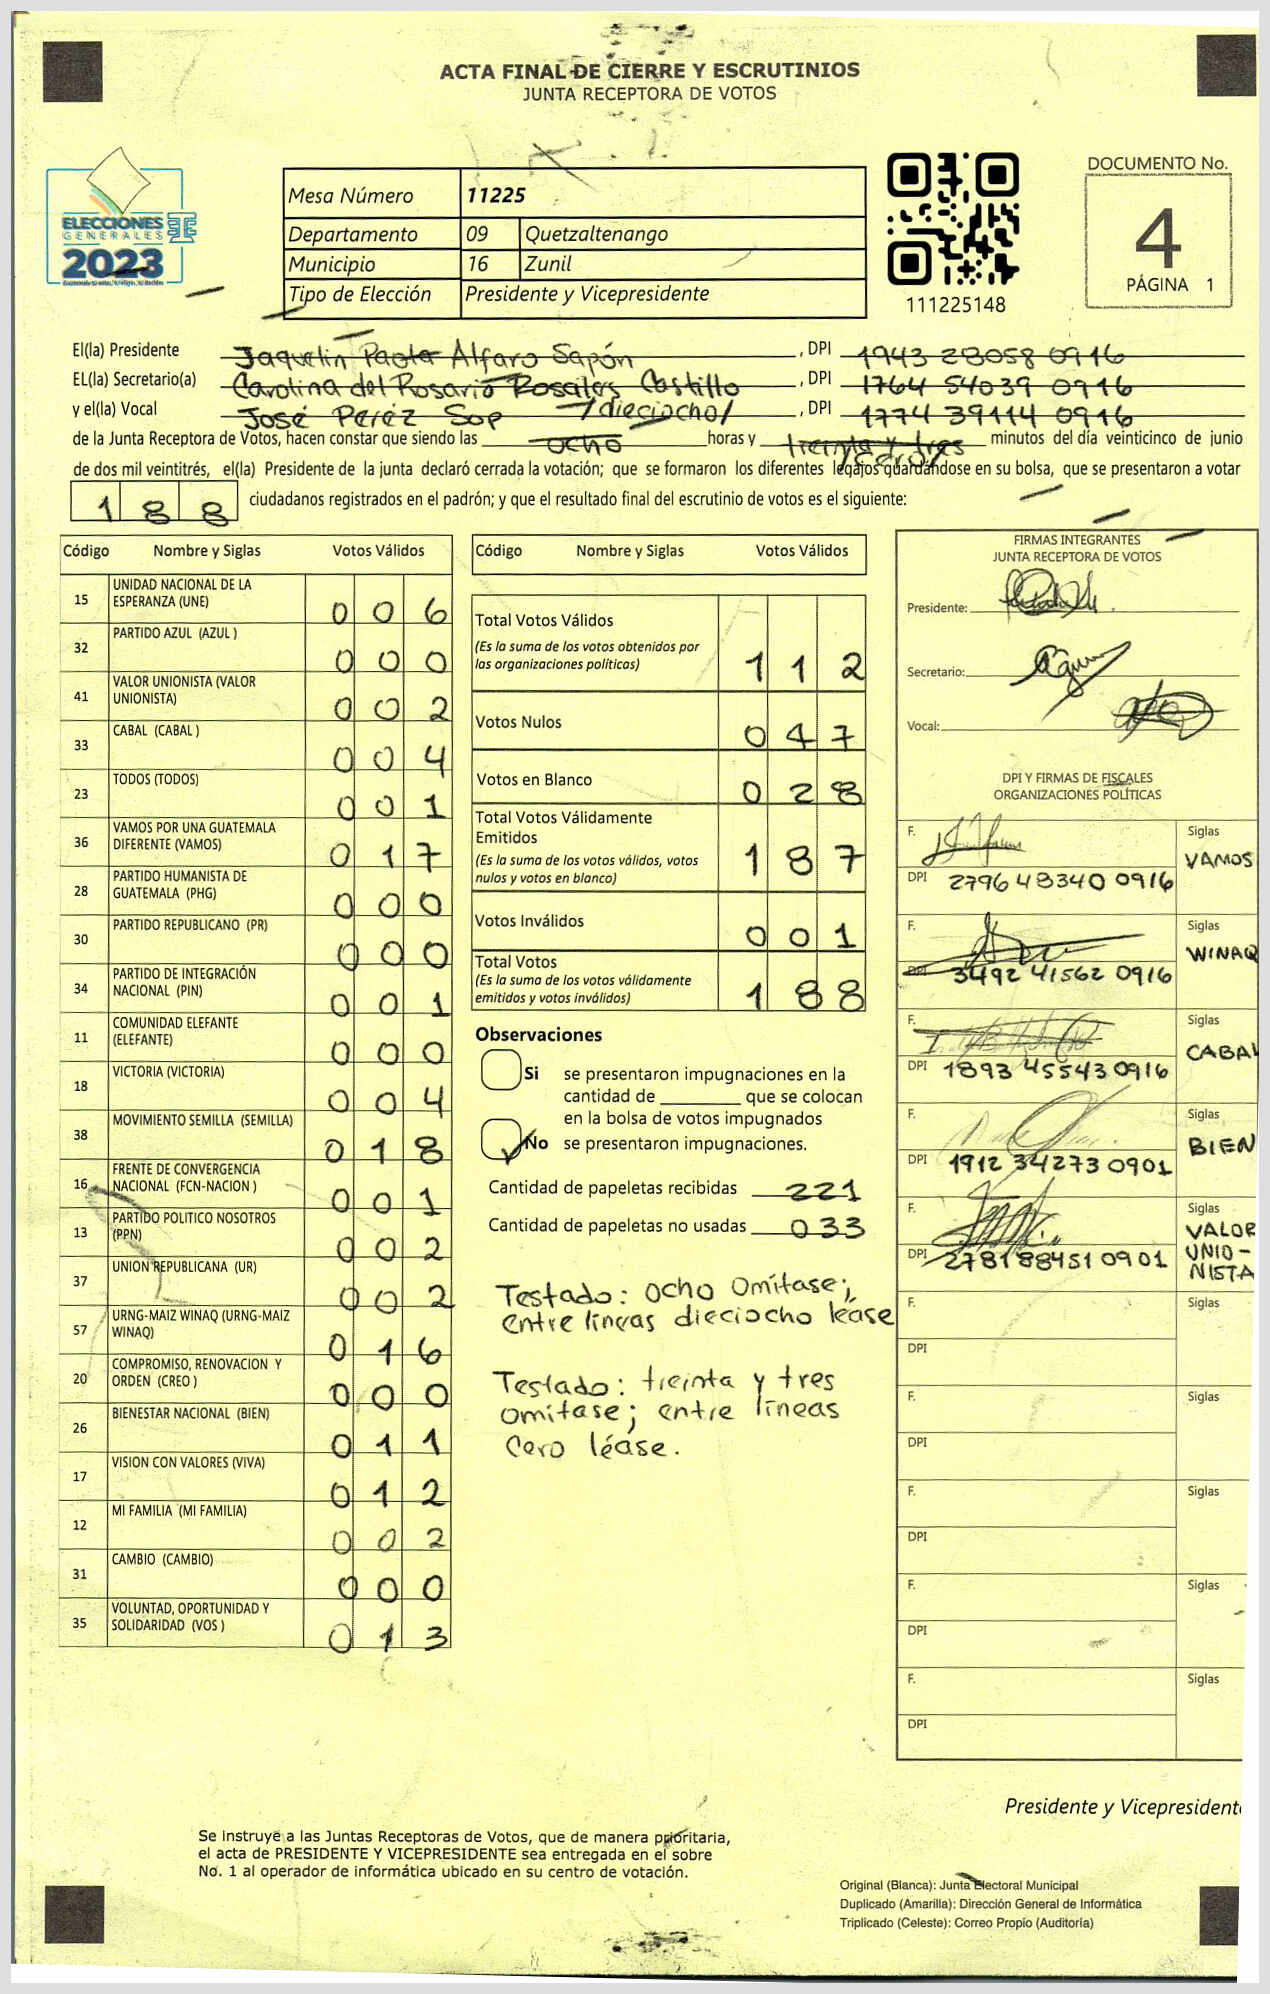 ACTA FINAL DE CIERRE Y ESCRUTINIOS
JUNTA RECEPTORA DE VOTOS
ELECCIONES
GENERALES
2023
Mesa Número 11225
Departamento 09 Quetzaltenango
Municipio 16 Zunil
Tipo de Elección Presidente y Vicepresidente
111225148
DOCUMENTO No.
4
PÁGINA 1
El(la) Presidente Jaquelin Paola Alfaro Sapón, DPI 1943 28058 0916
EL(la) Secretario(a) Carolina del Rosario Rosales Castillo, DPI 1764 54039 0916
y el(la) Vocal José Peréz Sop /dieciocho/, DPI 1774 39114 0916
de la Junta Receptora de Votos, hacen constar que siendo las ocho horas y treinta y tres minutos del día veinticinco de junio
/cero/
de dos mil veintitrés, el(la) Presidente de la junta declaró cerrada la votación; que se formaron los diferentes legajos guardándose en su bolsa, que se presentaron a votar
188 ciudadanos registrados en el padrón; y que el resultado final del escrutinio de votos es el siguiente:
Código Nombre y Siglas Votos Válidos
15 UNIDAD NACIONAL DE LA ESPERANZA (UNE) 006
32 PARTIDO AZUL (AZUL ) 000
41 VALOR UNIONISTA (VALOR UNIONISTA) 002
33 CABAL (CABAL ) 004
23 TODOS (TODOS) 001
36 VAMOS POR UNA GUATEMALA DIFERENTE (VAMOS) 017
28 PARTIDO HUMANISTA DE GUATEMALA (PHG) 000
30 PARTIDO REPUBLICANO (PR) 000
34 PARTIDO DE INTEGRACIÓN NACIONAL (PIN) 001
11 COMUNIDAD ELEFANTE (ELEFANTE) 000
18 VICTORIA (VICTORIA) 004
38 MOVIMIENTO SEMILLA (SEMILLA) 018
16 FRENTE DE CONVERGENCIA NACIONAL (FCN-NACION ) 001
13 PARTIDO POLITICO NOSOTROS (PPN) 002
37 UNION REPUBLICANA (UR) 002
57 URNG-MAIZ WINAQ (URNG-MAIZ WINAQ) 016
20 COMPROMISO, RENOVACION Y ORDEN (CREO ) 000
26 BIENESTAR NACIONAL (BIEN) 011
17 VISION CON VALORES (VIVA) 012
12 MI FAMILIA (MI FAMILIA) 002
31 CAMBIO (CAMBIO) 000
35 VOLUNTAD, OPORTUNIDAD Y SOLIDARIDAD (VOS ) 013
Código Nombre y Siglas Votos Válidos
Total Votos Válidos
(Es la suma de los votos obtenidos por
las organizaciones políticas) 112
Votos Nulos 047
Votos en Blanco 028
Total Votos Válidamente
Emitidos
(Es la suma de los votos válidos, votos
nulos y votos en blanco) 187
Votos Inválidos 001
Total Votos
(Es la suma de los votos válidamente
emitidos y votos inválidos) 188
Observaciones
Si se presentaron impugnaciones en la
cantidad de ________ que se colocan
en la bolsa de votos impugnados
No se presentaron impugnaciones.
Cantidad de papeletas recibidas 221
Cantidad de papeletas no usadas 033
Testado: ocho Omítase;
entre líneas dieciocho léase
Testado: treinta y tres
omítase; entre líneas
cero léase.
FIRMAS INTEGRANTES
JUNTA RECEPTORA DE VOTOS
Presidente:
Secretario:
Vocal:
DPI Y FIRMAS DE FISCALES
ORGANIZACIONES POLÍTICAS
F. Siglas VAMOS
DPI 2796 48340 0916
F. Siglas WINAQ
DPI 3492 41562 0916
F. Siglas CABAL
DPI 1893 45543 0916
F. Siglas BIEN
DPI 1912 34273 0901
F. Siglas VALOR UNIO-NISTA
DPI 2781 88451 0901
F. Siglas
DPI
F. Siglas
DPI
F. Siglas
DPI
F. Siglas
DPI
F. Siglas
DPI
Presidente y Vicepresidente
Se instruye a las Juntas Receptoras de Votos, que de manera prioritaria,
el acta de PRESIDENTE Y VICEPRESIDENTE sea entregada en el sobre
No. 1 al operador de informática ubicado en su centro de votación.
Original (Blanca): Junta Electoral Municipal
Duplicado (Amarilla): Dirección General de Informática
Triplicado (Celeste): Correo Propio (Auditoría)